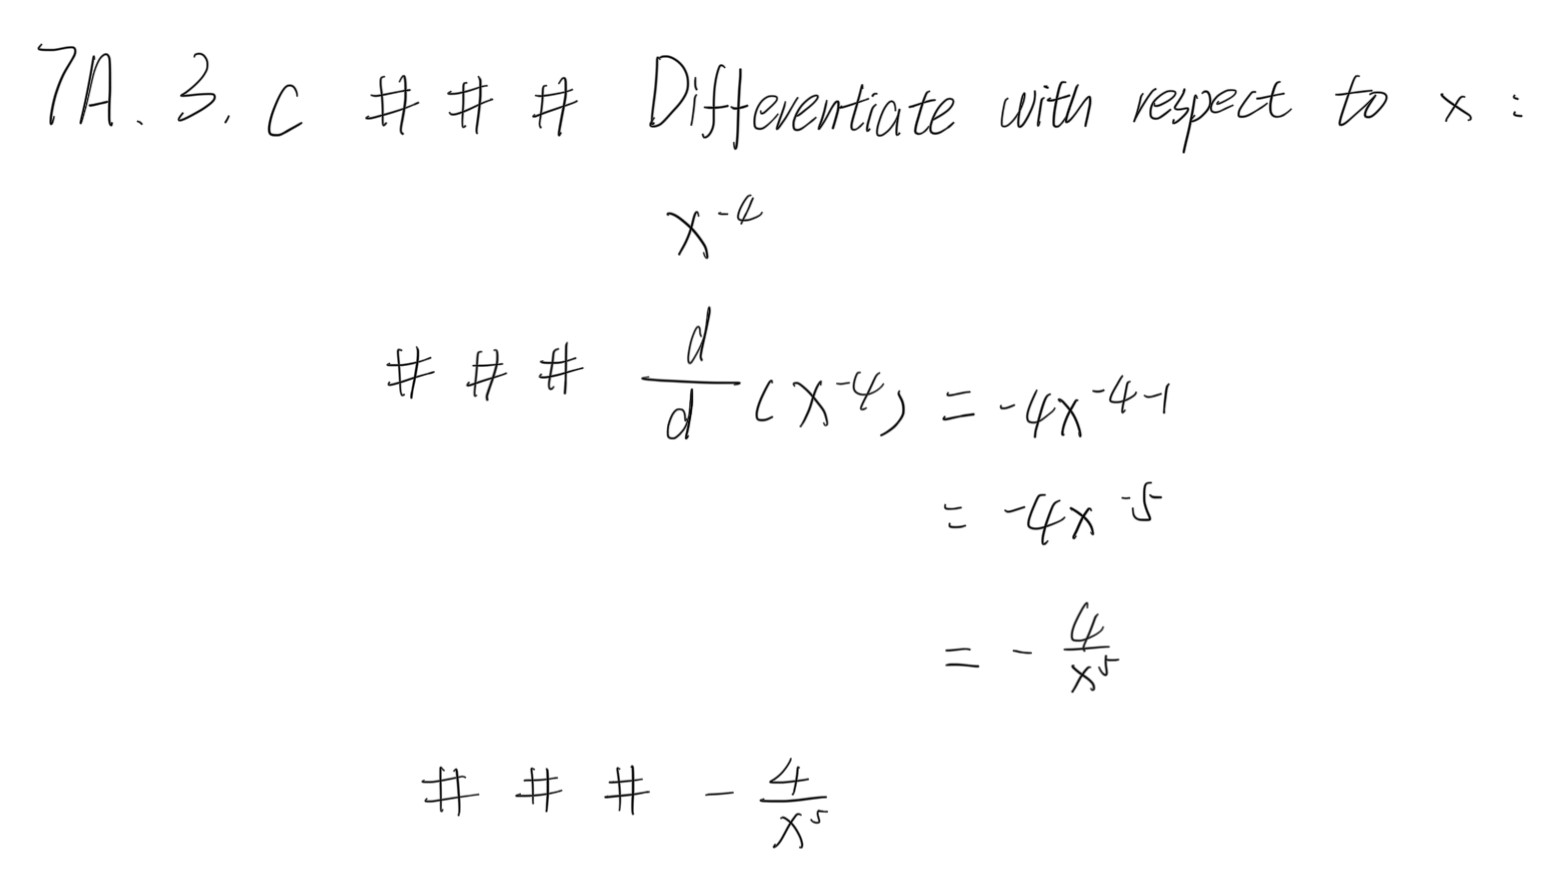 7A. 3. c # # # Differentiate with respect to x :
x^{-4}
# # # \frac{d}{d} (x^{-4}) = -4x^{-4-1}
= -4x^{-5}
= - \frac{4}{x^5}
# # # - \frac{4}{x^5}